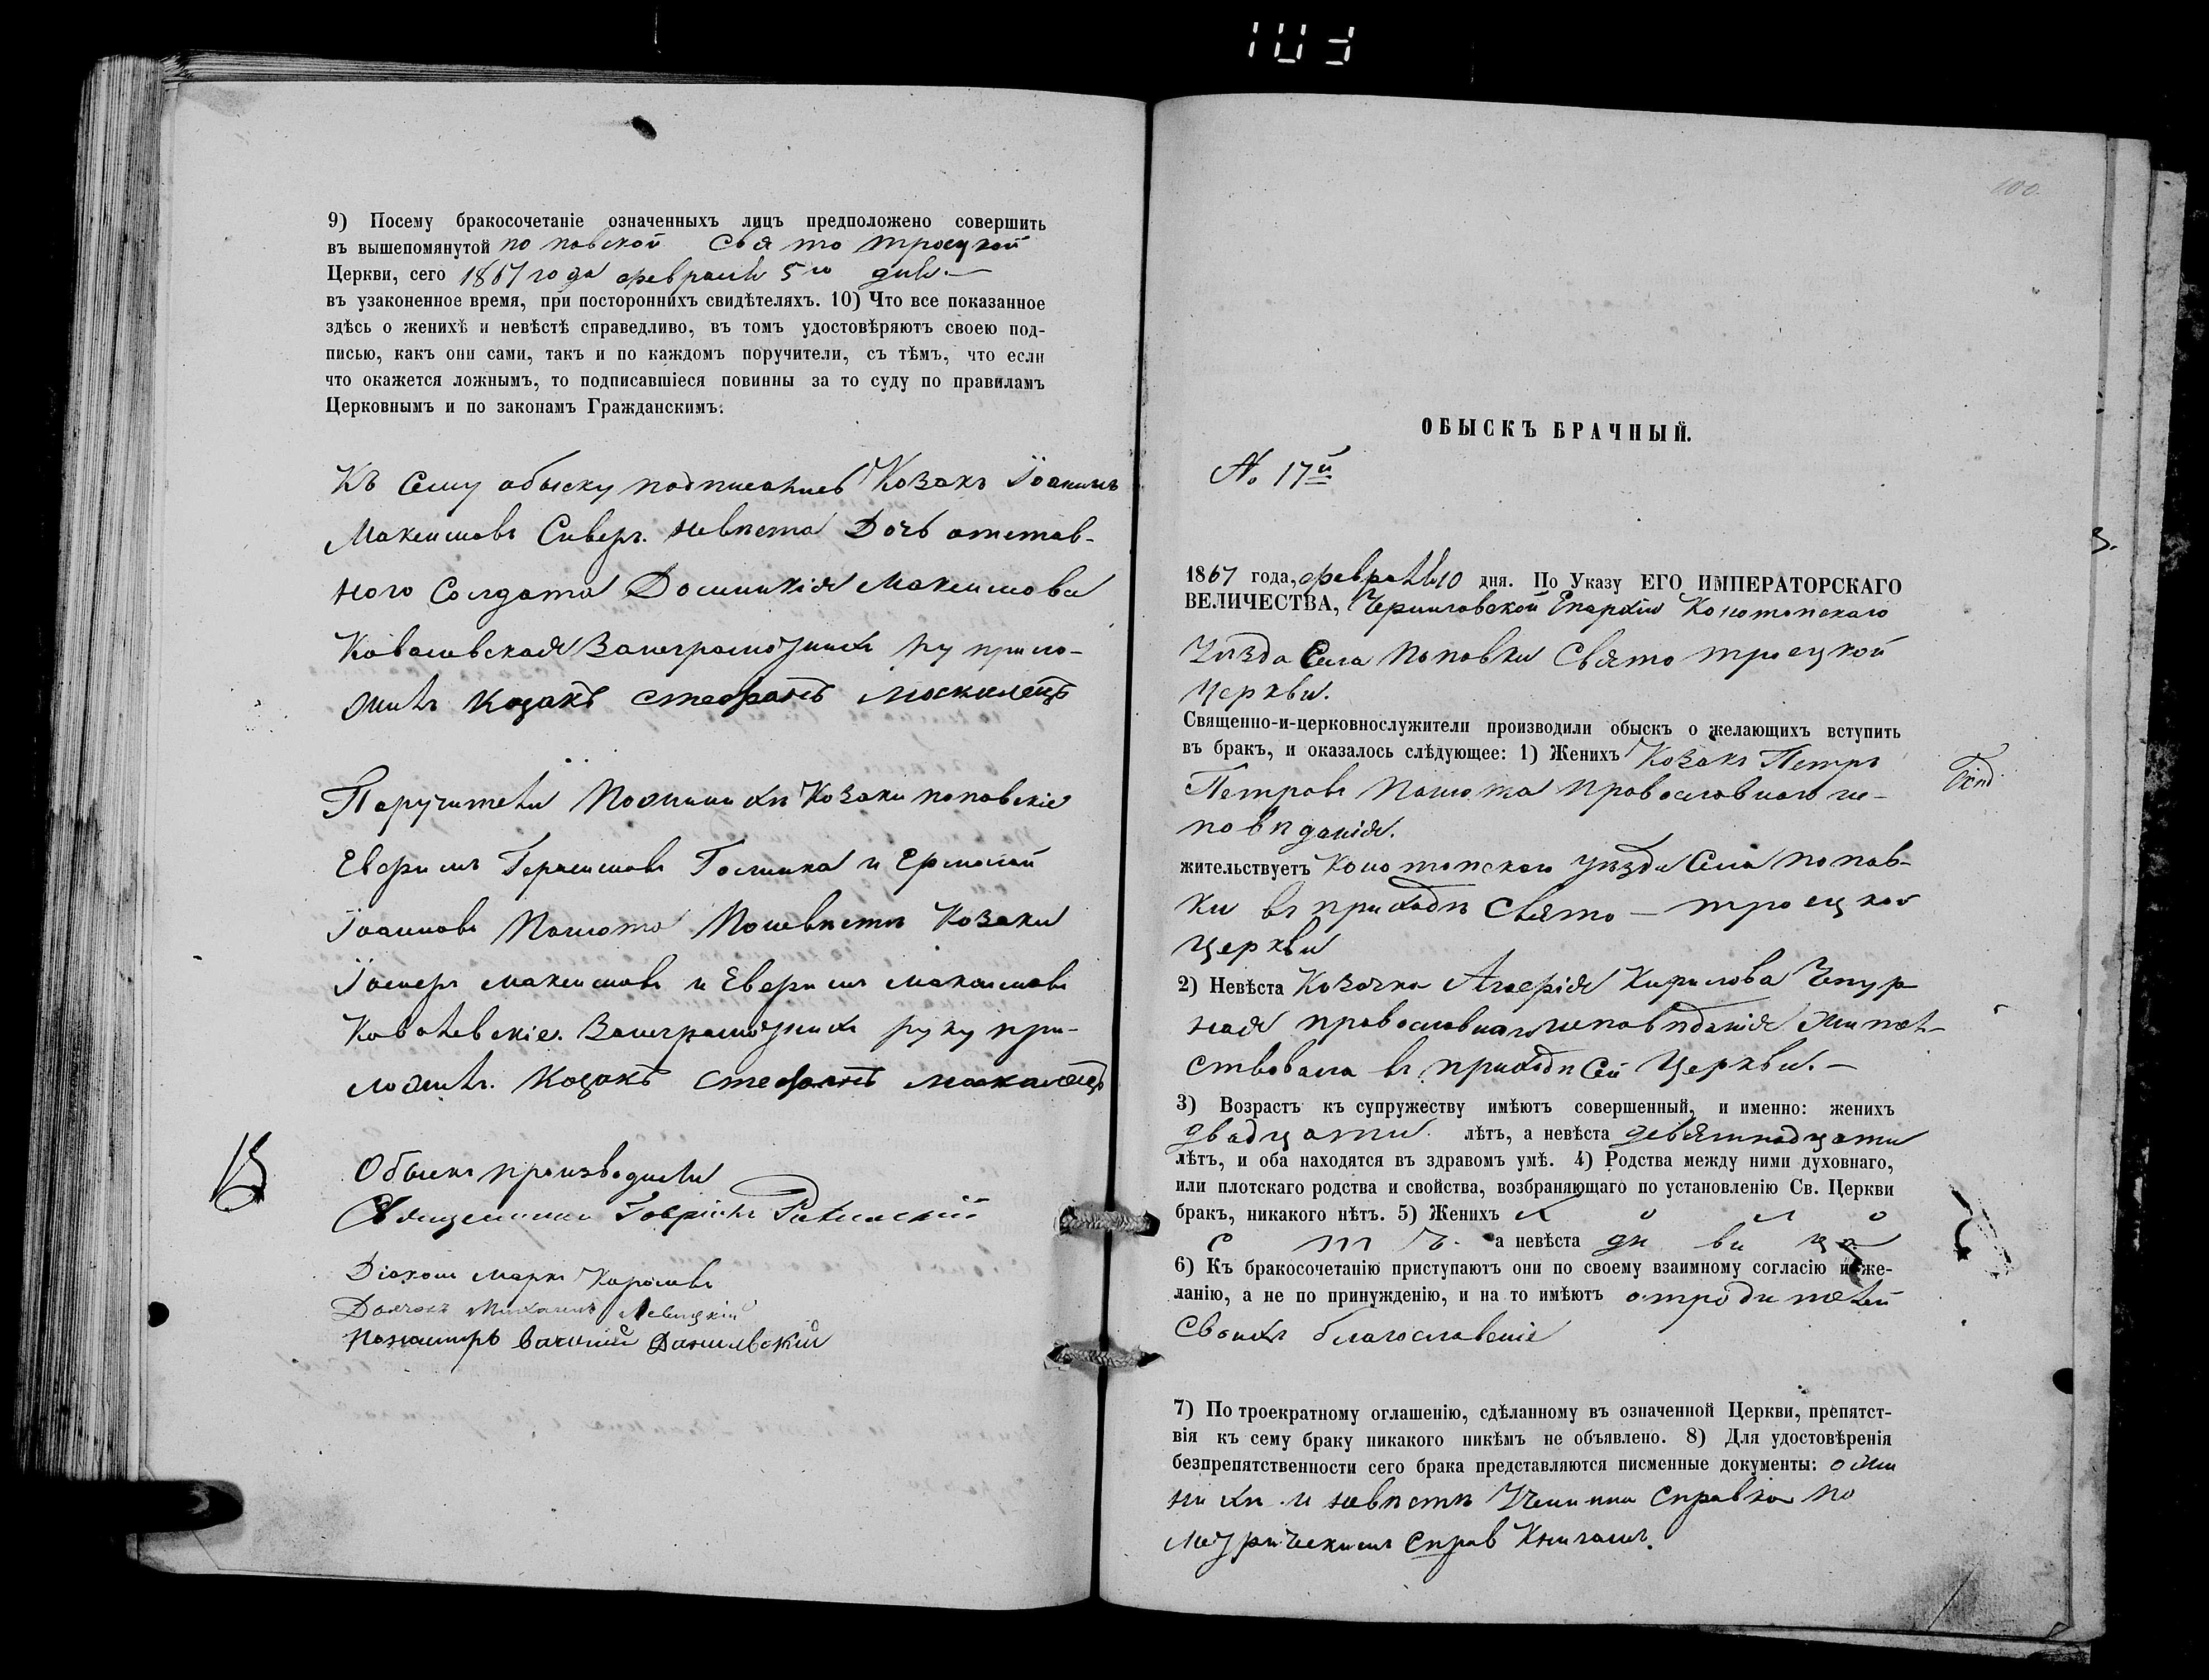 103
9) Посему бракосочетаніе означенныхъ лицъ предположено совершить
въ вышепомянутой поповской Свято троецкой
Церкви, сего 1867 года февраля 5го дня.—
въ узаконенное время, при постороннихъ свидѣтеляхъ. 10) Что все показанное
здѣсь о женихѣ и невѣстѣ справедливо, въ томъ удостовѣряютъ своею под-
писью, какъ они сами, такъ и по каждомъ поручители, съ тѣмъ, что если
что окажется ложнымъ, то подписавшіеся повинны за то суду по правиламъ
Церковнымъ и по законамъ Гражданскимъ.
Къ Сему обыску подписались Козакъ Іоакимъ
Максимовъ Сиверъ. Невѣста Дочь отстав-
ного Солдата Домникія Максимова
Ковалевская Занеграмотныхъ ру прило-
жилъ Козакъ стефанъ москалецъ
Поручители Пожинихѣ Козаки поповскіе
Евфимъ Герасимовъ и Ермолай
Іоанновъ Поневѣстѣ Козаки
Максимовъ и Евфимъ Максимовъ
Ковалевскіе. Занеграмотныхъ руку при-
ложилъ. Козакъ стефанъ москалецъ
Обыскъ производили
Священникъ Гавріилъ
Діаконъ Маркъ
Дьячокъ Михаилъ Левицкій
Понамаръ Василій Данилевскій
100.
ОБЫСКЪ БРАЧНЫЙ.
№ 17й
1867 года, февраля 10 дня. По Указу ЕГО ИМПЕРАТОРСКАГО
ВЕЛИЧЕСТВА, Черниговской Епархіи Конотопскаго
Уѣзда Села Поповки Свято троецкой
Церкви.
Священно-и-церковнослужители производили обыскъ о желающихъ вступить
въ бракъ, и оказалось слѣдующее: 1) Женихъ Козакъ Петръ
Петровъ православнаго ис-
повѣданія.
жительствуетъ Конотопскаго уѣзда Села попов-
ки въ приходѣ Свято — троецкой
церкви
2) Невѣста Козачка Агафія Кирилова Чепур
ная православнаго исповѣданія жител-
ствовала въ приходѣ Сей Церкви.—
3) Возрастъ къ супружеству имѣютъ совершенный, и именно: женихъ
двадцати лѣтъ, а невѣста девятнадцати
лѣтъ, и оба находятся въ здравомъ умѣ. 4) Родства между ними духовнаго,
или плотскаго родства и свойства, возбраняющаго по установленію Св. Церкви
бракъ, никакого нѣтъ. 5) Женихъ х о л о
с т ъ. а невѣста дѣ ви ца
6) Къ бракосочетанію приступаютъ они по своему взаимному согласію и же-
ланію, а не по принужденію, и на то имѣютъ отродителей
Своихъ благославеніе
7) По троекратному оглашенію, сдѣланному въ означенной Церкви, препятст-
вія къ сему браку никакого никѣмъ не объявлено. 8) Для удостовѣренія
безпрепятственности сего брака представляются писменные документы: о жи
нихѣ и невѣстѣ Учинина Справка по
метрическимъ справ Книгамъ.